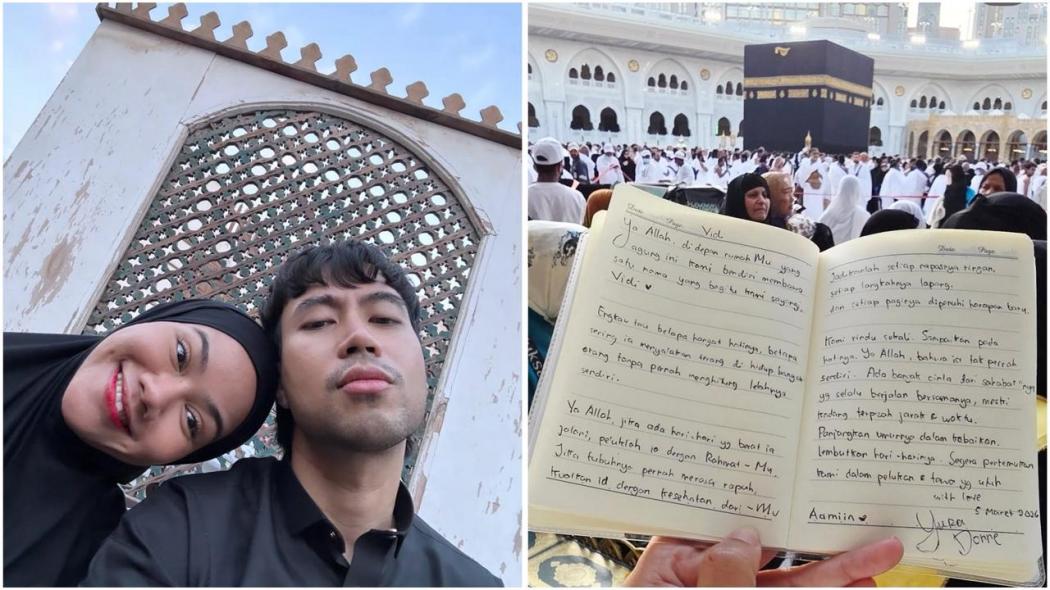 Date Page
Vid
Ya Allah, di depan rumah Mu yang
agung ini kami berdiri membawa
satu nama yang begitu kami sayangi,
Vidi
Engkau tau betapa hangat hatinya, betapa
sering ia menyalakan terang di hidup banyak
orang tanpa pernah menghitung lelahnya
sendiri.
Ya Allah, jika ada hari-hari yg berat ia
jalani, peluklah ia dengan Rahmat-Mu.
Jika tubuhnya pernah merasa rapuh,
kuatkan ia dengan kesehatan dari-Mu
Date Page
Jadikanlah setiap napasnya ringan,
setiap langkahnya lapang,
dan setiap paginya dipenuhi harapan baru.
Kami rindu sekali. Sampaikan pada
hatinya, Ya Allah, bahwa ia tak pernah
sendiri. Ada banyak cinta dari sahabat"nya
yg selalu berjalan bersamanya, meski
kadang terpisah jarak & waktu.
Panjangkan umurnya dalam kebaikan.
lembutkan hari-harinya. Segera pertemukan
kami dalam pelukan & tawa yg utuh
with love
5 Maret 2026
Aamiin
Yura
Donne